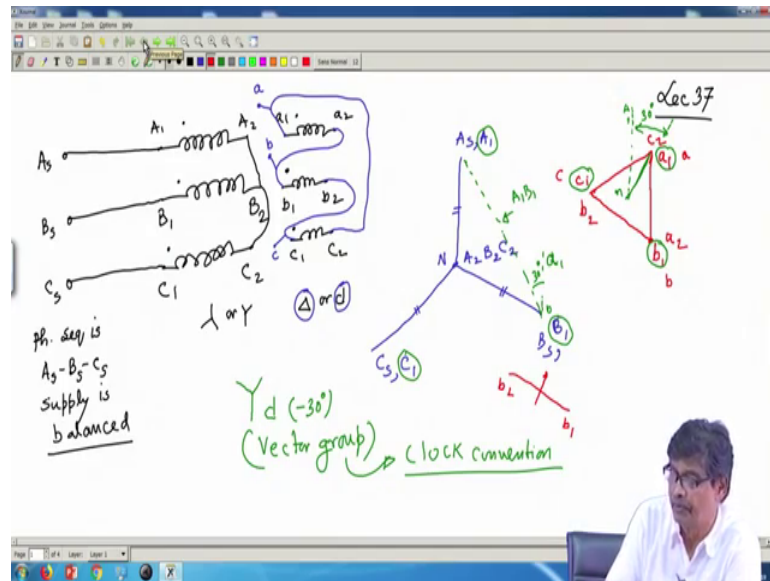 File Edit View Journal Tools Options Help
Previous Page
Sans Normal 12
Lec 37
As
A1
A2
Bs
B1
B2
Cs
C1
C2
a
a1
a2
b
b1
b2
c
c1
c2
Y or Y
Δ or d
ph. seq is
As-Bs-Cs
supply is
balanced
As, A1
A1B1
N
A2 B2 C2
30°
Bs, B1
Cs, C1
A
30°
c2
a1 a
n
c c1
b2
a2
b1
b
b2
b1
Yd (-30°)
(Vector group)
Clock convention
Page 1 of 4 Layer: Layer 1